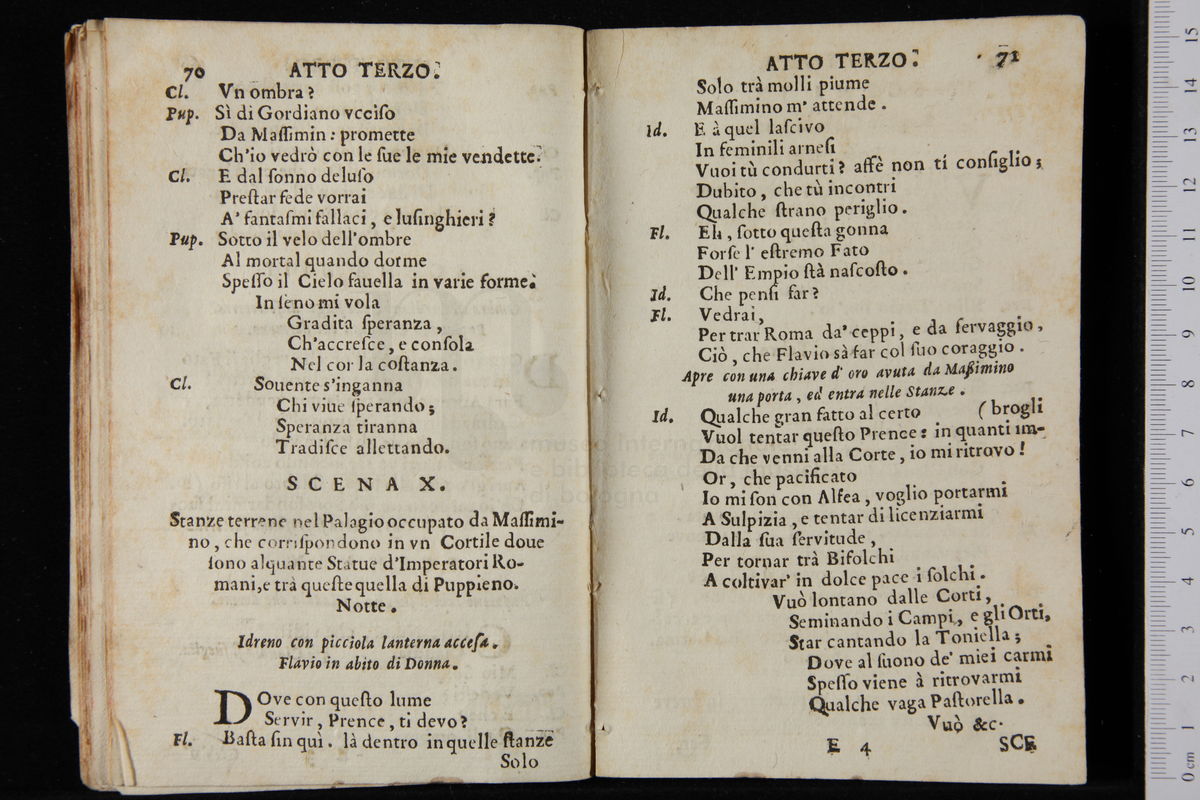 70 ATTO TERZO.
Cl. Vn ombra?
Pup. Sì di Gordiano vcciſo
Da Maſſimin: promette
Ch'io vedrò con le ſue le mie vendette.
Cl. E dal ſonno deluſo
Preſtar fede vorrai
A' fantaſmi fallaci, e luſinghieri?
Pup. Sotto il velo dell'ombre
Al mortal quando dorme
Speſſo il Cielo fauella in varie forme.
In ſeno mi vola
Gradita ſperanza,
Ch'accreſce, e conſola
Nel cor la coſtanza.
Cl. Souente s'inganna
Chi viue ſperando;
Speranza tiranna
Tradiſce allettando.
SCENA X.
Stanze terrene nel Palagio occupato da Maſſimi-
no, che corriſpondono in vn Cortile doue
ſono alquante Statue d'Imperatori Ro-
mani, e trà queſte quella di Puppieno.
Notte.
Idreno con picciola lanterna acceſa.
Flavio in abito di Donna.
DOve con queſto lume
Servir, Prence, ti devo?
Fl. Baſta ſin quì. là dentro in quelle ſtanze
Solo
ATTO TERZO. 71
Solo trà molli piume
Maſſimino m' attende.
Id. E à quel laſcivo
In feminili arneſi
Vuoi tù condurti? affè non ti conſiglio;
Dubito, che tù incontri
Qualche ſtrano periglio.
Fl. Eh, ſotto queſta gonna
Forſe l' eſtremo Fato
Dell' Empio ſtà naſcoſto.
Id. Che penſi far?
Fl. Vedrai,
Per trar Roma da' ceppi, e da ſervaggio,
Ciò, che Flavio sà far col ſuo coraggio.
Apre con una chiave d' oro avuta da Maſſimino
una porta, ed entra nelle Stanze.
Id. Qualche gran fatto al certo (brogli
Vuol tentar queſto Prence: in quanti im-
Da che venni alla Corte, io mi ritrovo!
Or, che pacificato
Io mi ſon con Alfea, voglio portarmi
A Sulpizia, e tentar di licenziarmi
Dalla ſua ſervitude,
Per tornar trà Bifolchi
A coltivar' in dolce pace i ſolchi.
Vuò lontano dalle Corti,
Seminando i Campi, e gli Orti,
Star cantando la Toniella;
Dove al ſuono de' miei carmi
Speſſo viene à ritrovarmi
Qualche vaga Paſtorella.
Vuò &c.
E 4 SCE